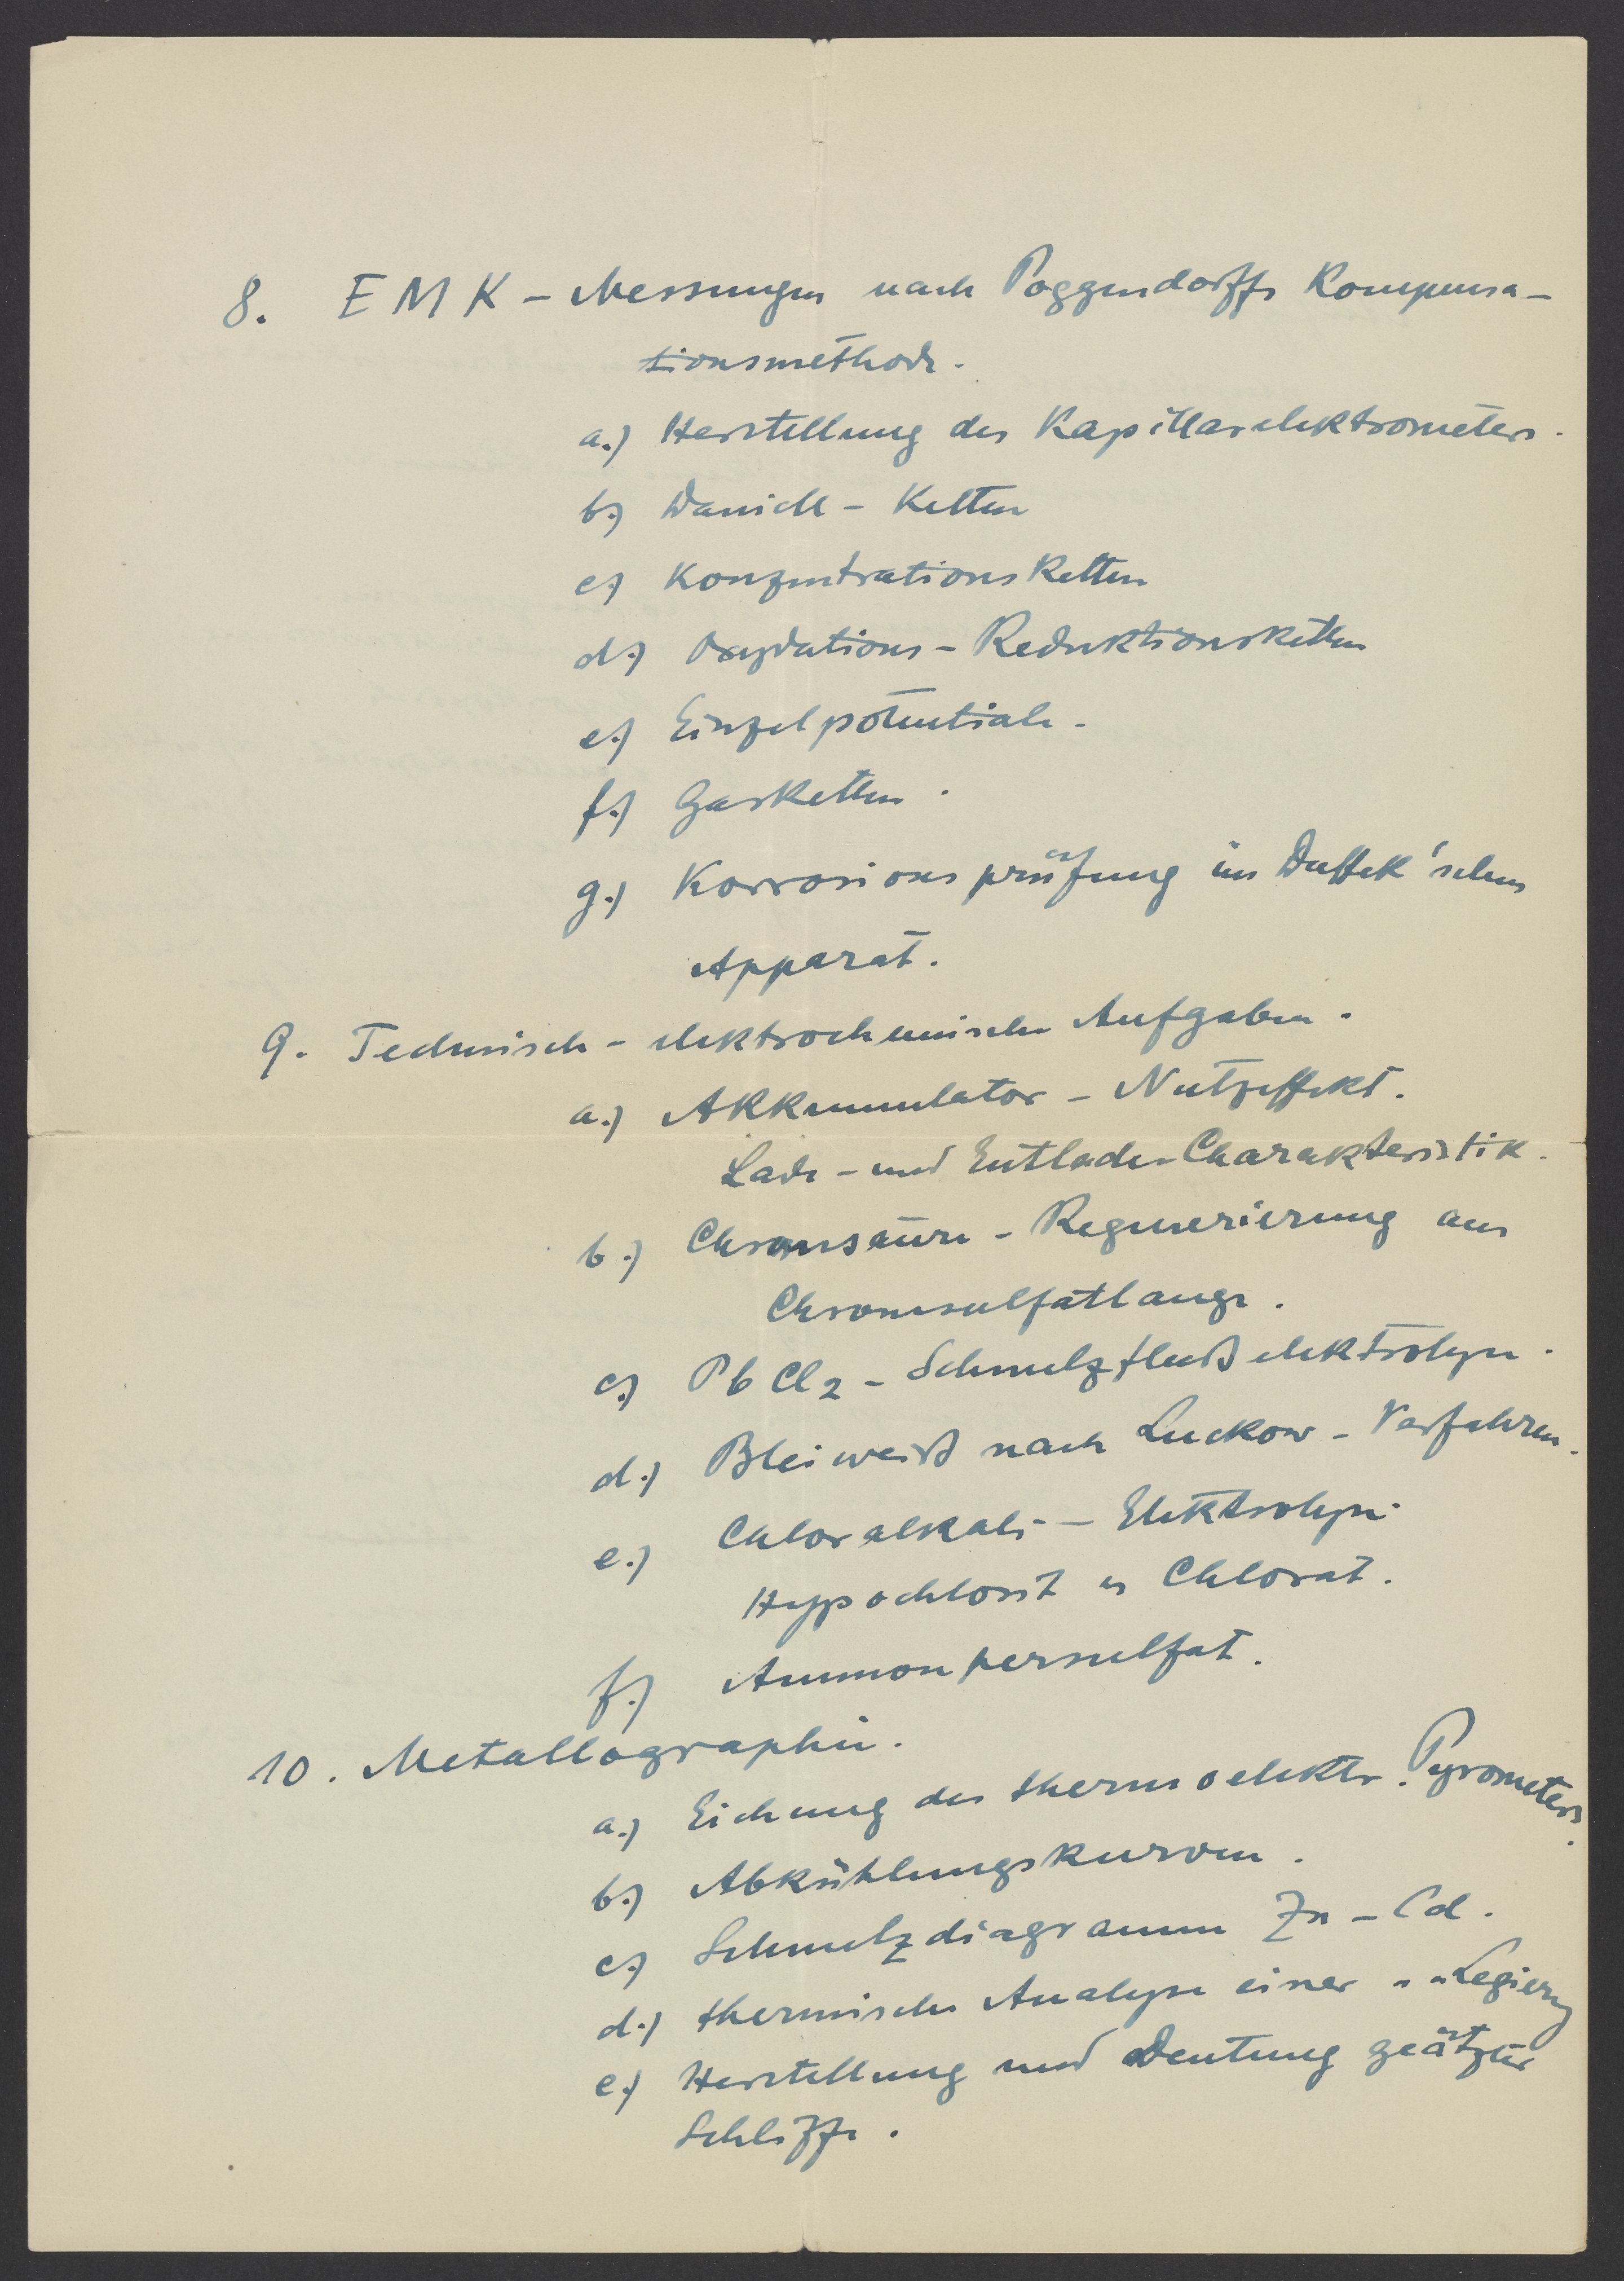 8. EMK - Messungen nach Poggendorffs Kompensa-
tionsmethode.
a.) Herstellung des Kapillarelektrometers.
b.) Daniell - Ketten
c.) Konzentrationsketten
d.) Oxydations - Reduktionsketten
e.) Einzelpotentiale.
f.) Gasketten.
g.) Korrosionsprüfung im Duffek'schen
Apparat.
9. Technisch - elektrochemische Aufgaben.
a.) Akkumulator - Nutzeffekt.
Lade - und Entlade-Charakteristik.
b.) Chromsäure - Regenerierung aus
Chromsulfatlauge.
c.) PbCl2 - Schmelzflußelektrolyse.
d.) Bleiweiß nach Luckow - Verfahren.
e.) Chloralkali - Elektrolyse
Hypochlorit u Chlorat.
f.) Ammonpersulfat.
10. Metallographie.
a.) Eichung des thermoelektr. Pyrometers.
b.) Abkühlungskurven.
c.) Schmelzdiagramm Zn - Cd.
d.) thermische Analyse einer " " Legierg
e.) Herstellung und Deutung geätzter
Schliffe.